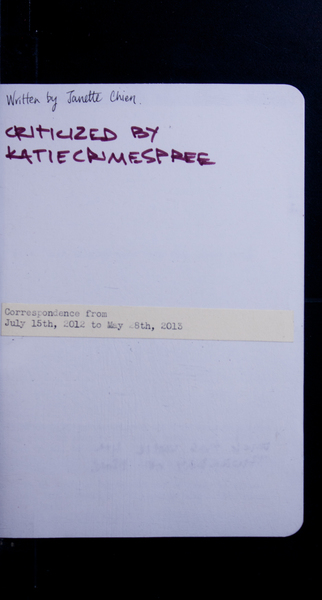 Written by Janette Chien.
CRITICIZED BY
KATIECRIMESPREE
Correspondence from
July 15th, 2012 to May 28th, 2013